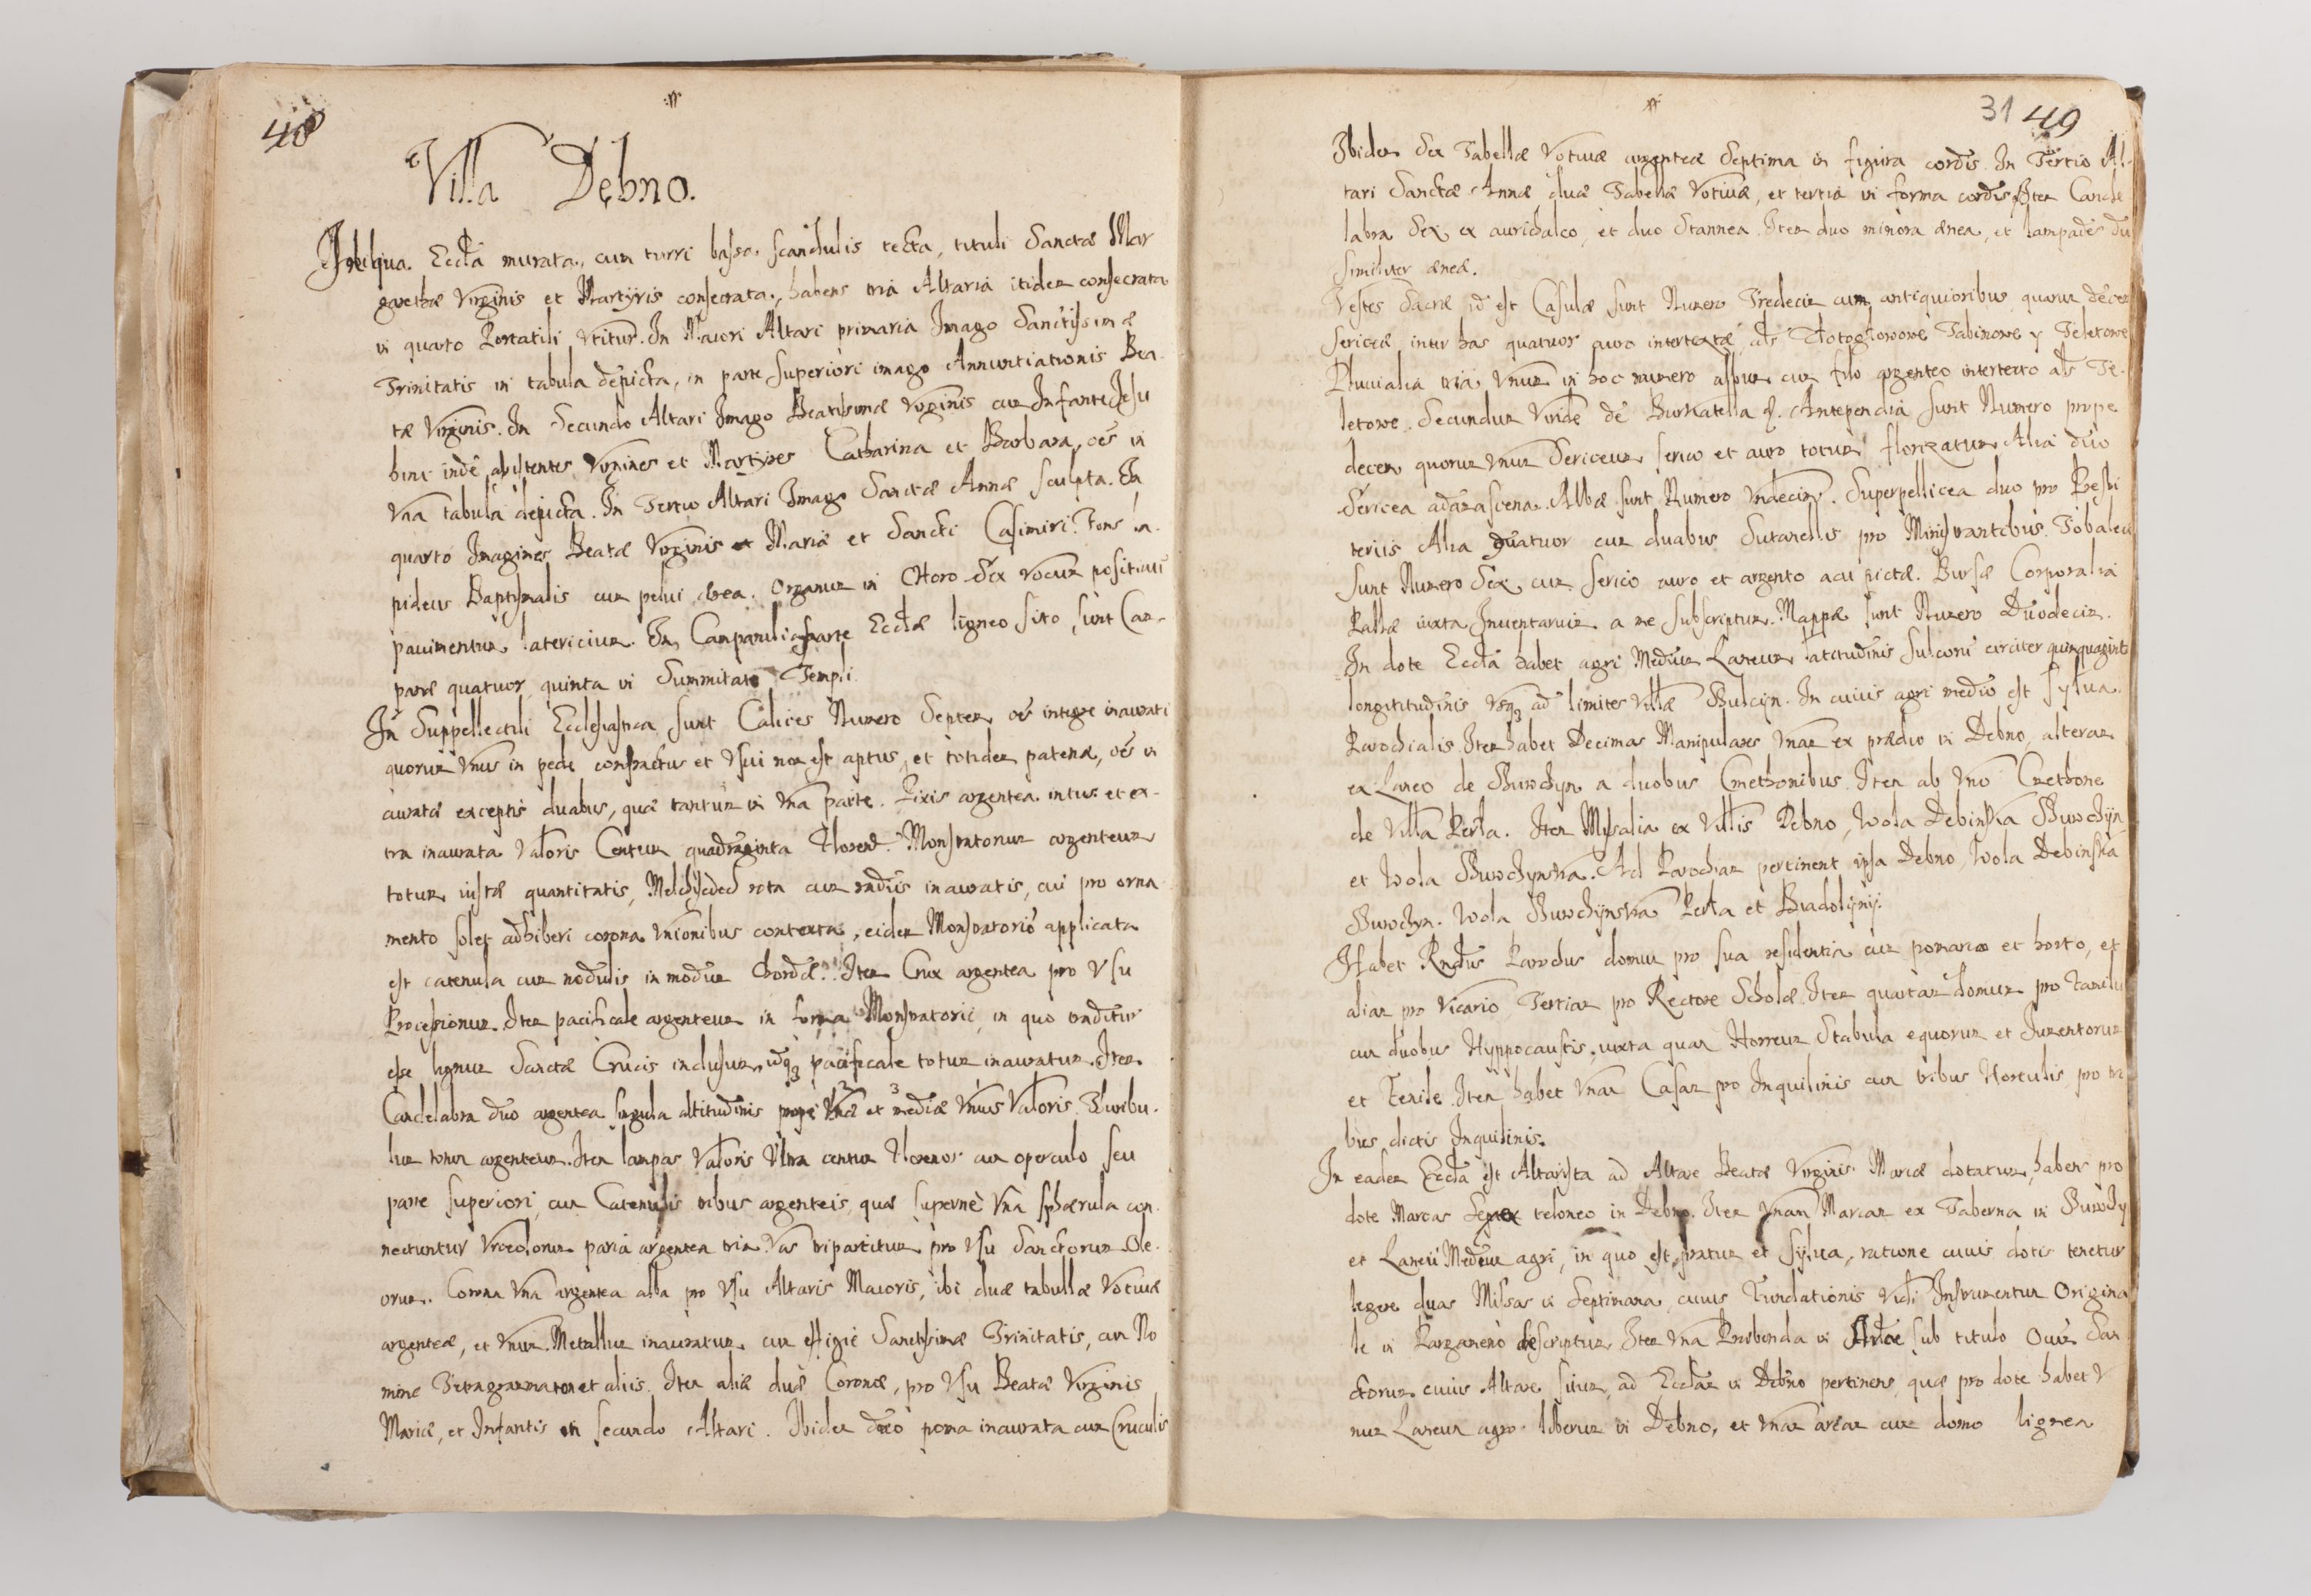 48
Villa Dębno.
In hac Eccłia murata, cum turri bassa scandulis tecta, tituli Sanctæ Mar
garethæ Virginis et Martyris consecrata, habens tria Altaria itidem consecrata
in quarto Portatili Vtitur. In Maiori Altari primaria Imago Sanctissimæ
Trinitatis in tabula depicta, in parte superiori imago Annuntiationis Bea
tæ Virginis. In Secundo Altari Imago Beatissimæ Virginis cum Infante Iesu
hinc inde assistentes Virgines et Martyres Catharina et Barbara, oēs in
Vna tabula depicta. In Tertio Altari Imago Sanctæ Annæ sculpta. In
quarto Imagines Beatæ Virginis Mariæ et Sancti Casimiri. Fons la
pideus Baptismalis cum pelui ærea. Organum in Choro sex vocum positiuū
pauimentum latericium. In Campanili parte Eccłæ ligneo sito, sunt Cam
panæ quatuor, quinta in Summitate Templi.
In Suppellectili Ecclesiastica sunt Calices Numero Septem oēs integre inaurati
quorum Vnus in pede confractus et Vsui non est aptus, et totidem patenæ, oēs in
auratæ exceptis duabus, quæ tantum in Vna parte. Pixis argentea intus et ex
tra inaurata Valoris Centum quadraginta Floren. Monstratorium argenteum
totum iustæ quantitatis, Melchisedech rota cum radiis inauratis, cui pro orna
mento solet adhiberi corona Vnionibus contexta, eidem Monstratorio applicata
est catenula cum nodulis in modum Chordæ. Item Crux argentea pro Vsu
Processionum. Item pacificale argenteum in forma Monstratorii, in quo conditur
esse lignum Sanctæ Crucis inclusum, idq3 pacificale totum inauratum. Item
Candelabra duo argentea singula altitudinis prope Vlnæ et mediæ Vnius Valoris. Turibu
lum totum argenteum. Item lampas Valoris Vltra centum Florenos cum operculo seu
parte superiori, cum Catenulis tribus argenteis, quæ superne Vna sphærula con
nectuntur. Vrceolorum paria argentea tria. Vas tripartitum pro Vsu Sanctorum Ole
orum. Corona Vna argentea alba pro Vsu Altaris Maioris, ibi duæ tabullæ Votiuæ
argenteæ, et Vnum Metallum inauratum cum effigie Sanctissimæ Trinitatis, cum No
mine Tetragrammaton et aliis. Item aliæ duæ Coronæ, pro Vsu Beatæ Virginis
Mariæ, et Infantis in secundo Altari. Ibidem duo poma inaurata cum Cruculis
31 49
Ibidem Sex Tabellæ Votiuæ argenteæ Septima in figura cordis. In Tertio Al
tari Sanctæ Annæ, duæ Tabellæ Votiuæ, et tertia in forma cordis. Item Cande
labra Sex ex aurichalco, et duo Stannea. Item duo minora ænea, et lampades du
similiter æneæ.
Vestes Sacræ id est Casulæ sunt Numero Tredecim cum antiquioribus quarum decem
sericeæ inter has quatuor auro intertextæ, als Złotogłowowe Tabinowe y Teletowe
Pluuialia tria Vnum in hoc numero album cum filo argenteo intertexto als Te
letowe. Secundum Viride de Burkatella. Antependia sunt Numero prope
decem quorum Vnum Sericeum serico et auro totum florizatum. Alia duo
Sericea adamascena. Albæ sunt Numero Vndecim. Superpellicea duo pro Presbi
teriis Alia quatuor cum duabus Sutanellis pro Ministrantibus. Tobaleæ
sunt Numero Sex cum serico auro et argento acu pictæ. Bursæ Corporalia
Pallæ iuxta Inuentarium a me subscriptum. Mappæ sunt Numero Duodecim.
In dote Eccła habet agri Medium Laneum latitudinis sulcorū circiter quinquaginta
longititudinis Vsq3 ad limites Villæ. In cuius agri medio est sylua
Parochialis. Item habet Decimas Manipulares Vnam ex prædio in Debno, alteram
ex Laneo de a duobus Cmethonibus. Item ab Vno Cmethone
de Villa Perła. Item Missalia ex Villis Debno, Wola Debinska
et Wola. Ad Parochiam pertinent ipsa Debno, Wola Debinska
Wola Perła et Biadolijnij.
Habet Rndus Parochus domum pro sua residentia cum pomario et horto, et
aliam pro Vicario Tertiam pro Rectore Scholæ. Item quartam domum pro Familia
cum duobus Hyppocaustis, iuxta quam Horreum Stabula equorum et Iumentorum
et Fenile. Item habet Vnam Casam pro Inquilinis cum tribus Hortulis pro tri
bus dictis Inquilinis.
In eadem Eccła est Altarista ad Altare Beatæ Virginis Mariæ dotatum, habens pro
dote Marcas Septem teloneo in Debno. Item Vnam Marcam ex Taberna in
et Laneū Medium agri, in quo est pratum et sylua, ratione cuius dotis tenetur
legere duas Missas in Septimana, cuius Fundationis Vidi Instrumentum Origina
le in Pargameno descriptum. Item Vna Præbenda in sub titulo Oīum San
ctorum cuius Altare situm ad Eccłam in Debno pertinens, quæ pro dote habet V
num Laneum agro liberum in Debno, et Vnam aream cum domo lignea